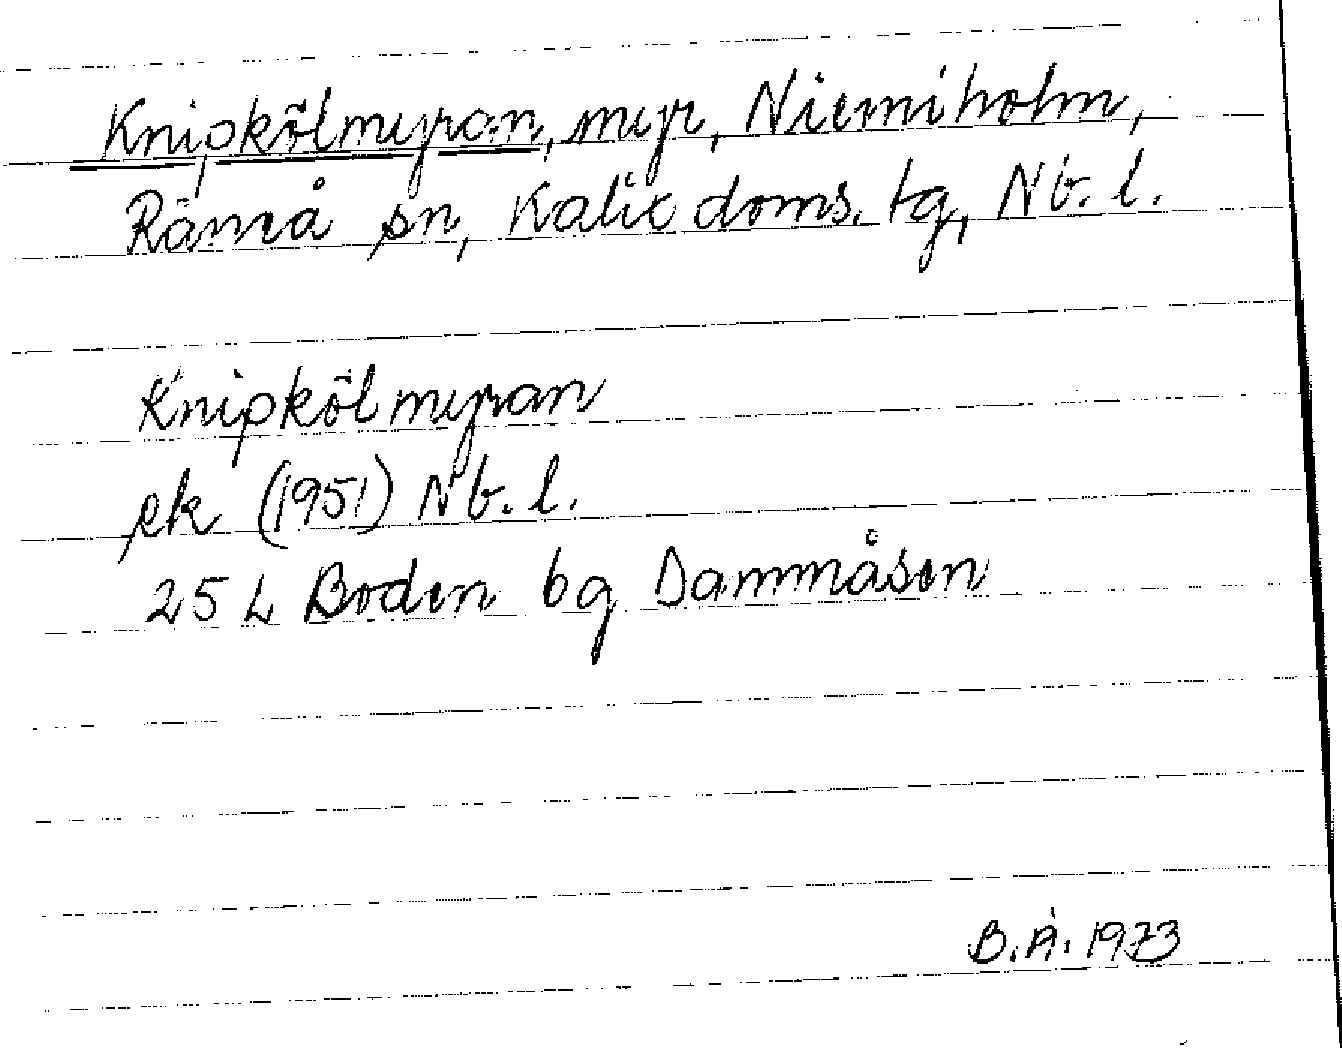 Knipkölmyran, myr, Niemiholm,
Råneå sn, Kalix doms. tg, Nb. l.
Knipkölmyran
ek (1951) Nb. l.
25 L Boden 6g Dammåsen
B.Å. 1973